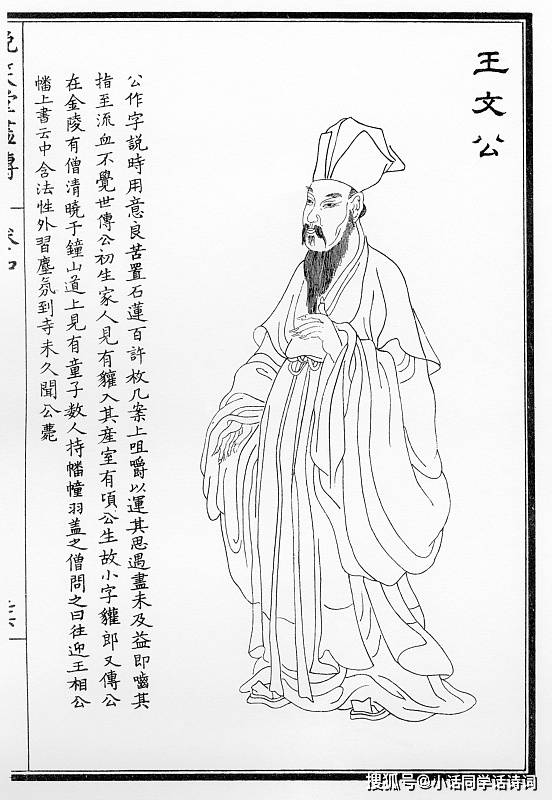 王文公
公作字説時用意良苦置石蓮百許枚几案上咀嚼以運其思遇盡未及益即嚙其
指至流血不覺世傳公初生家人見有貛入其產室有頃公生故小字貛郎又傳公
在金陵有僧清曉于鐘山道上見有童子数人持幡幢羽蓋之僧問之曰往迎王相公
幡上書云中含法性外習塵氛到寺未久聞公薨
搜狐号@小话同学话诗词